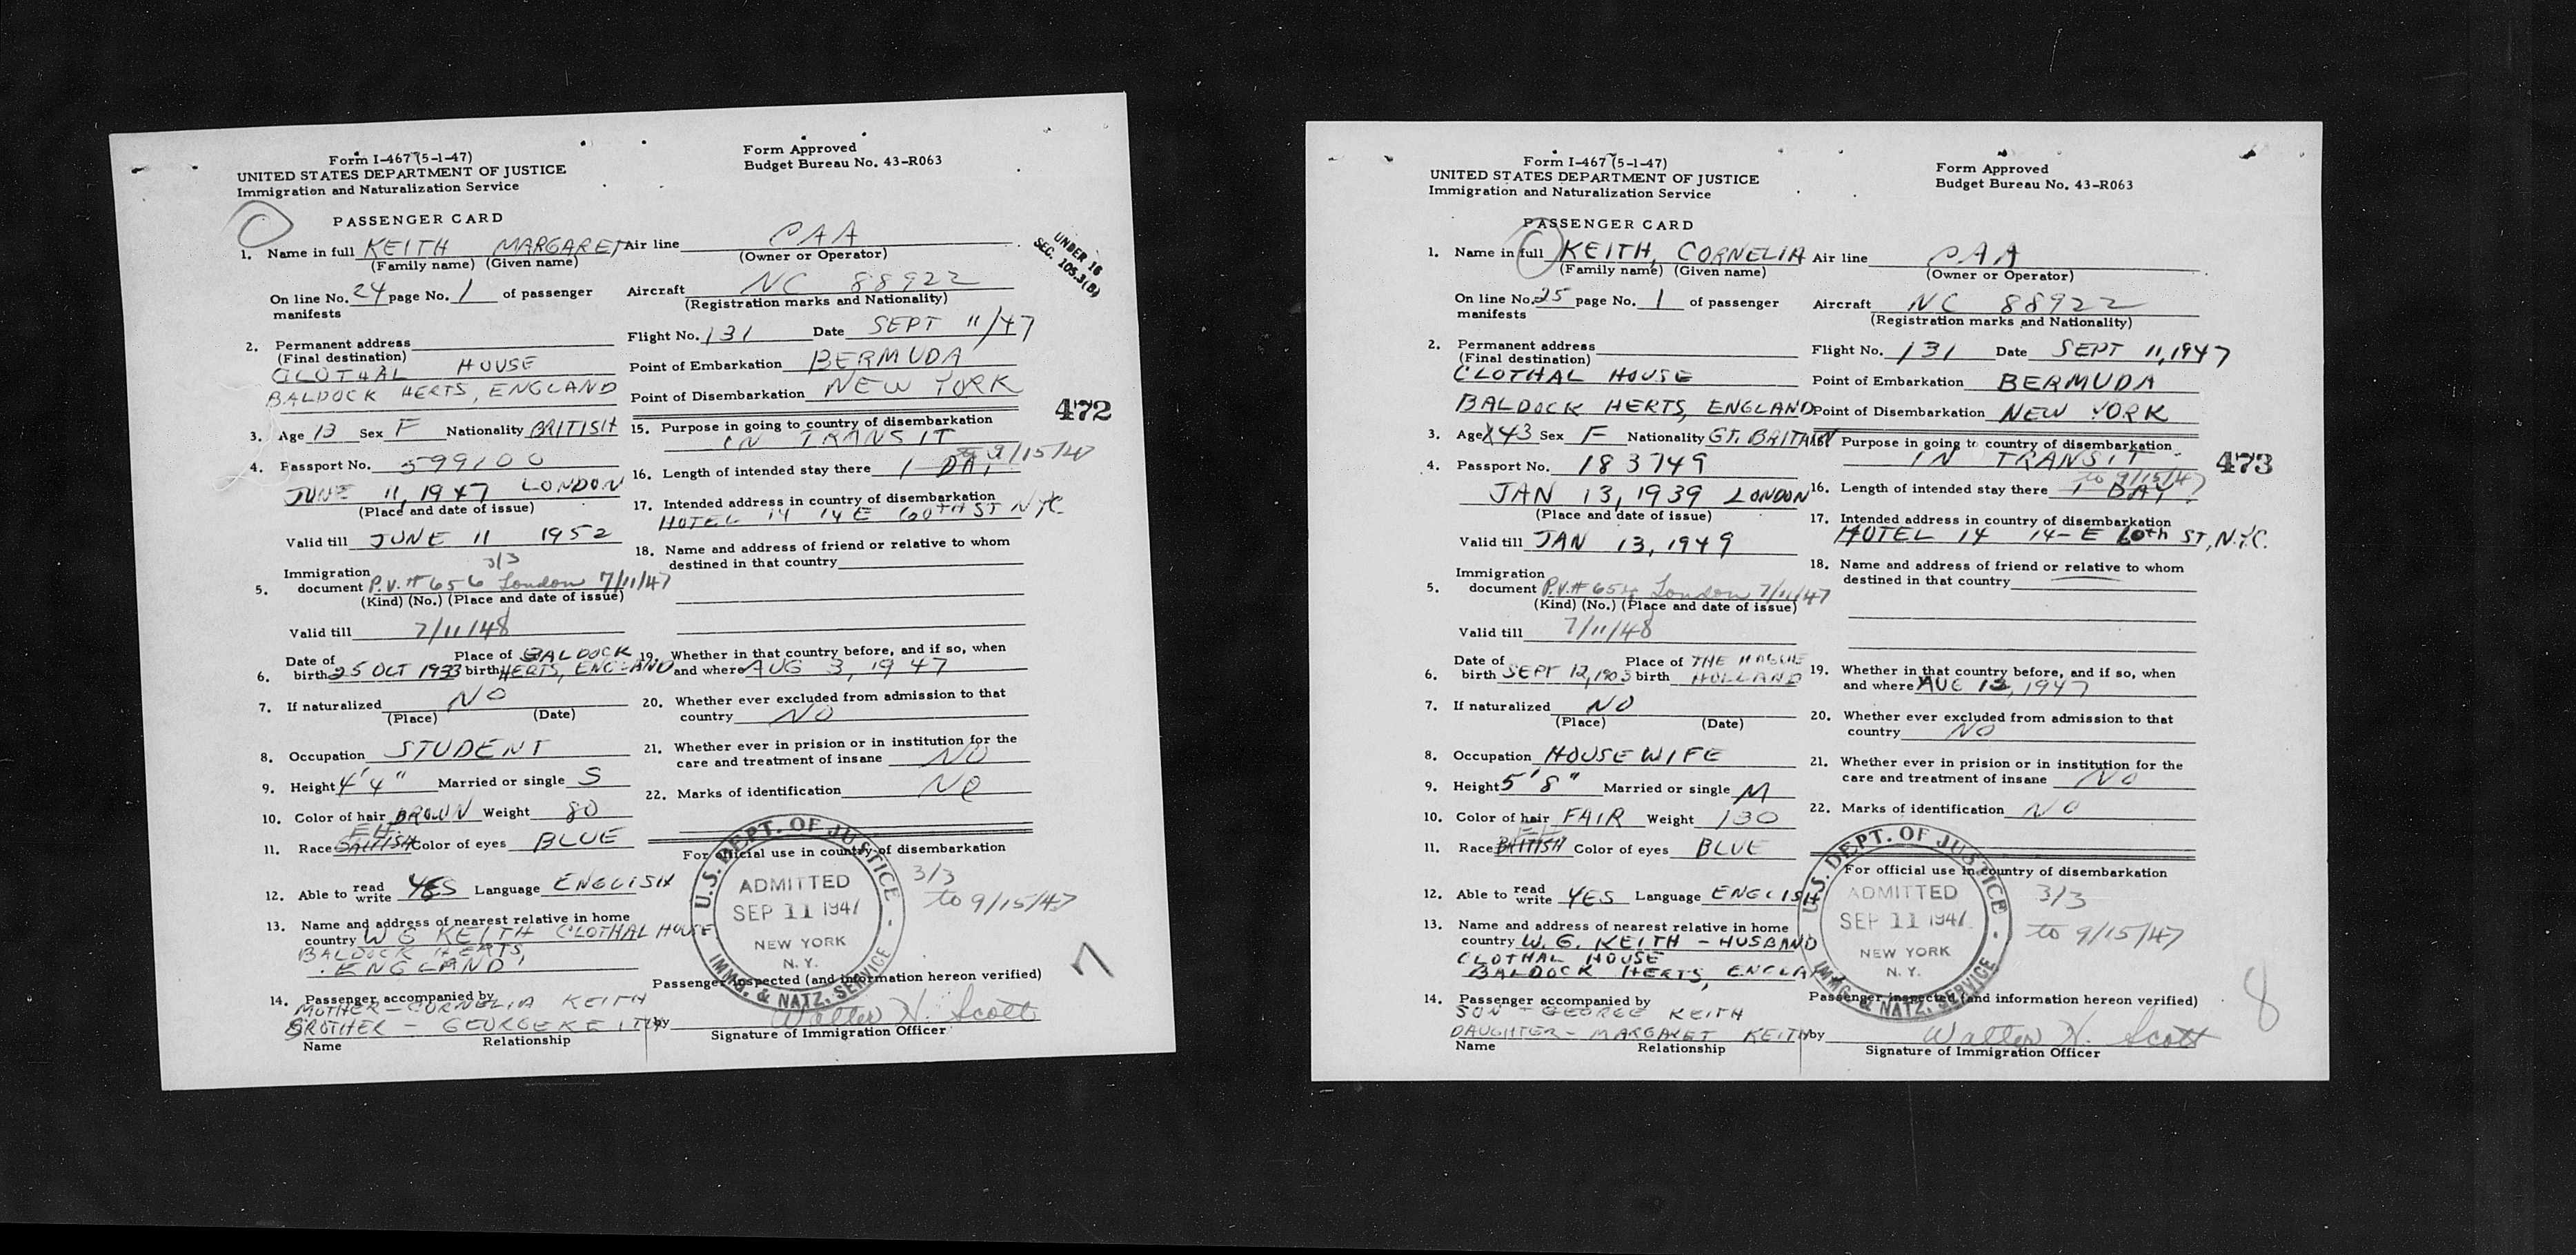 Form I-467 (5-1-47)
UNITED STATES DEPARTMENT OF JUSTICE
Immigration and Naturalization Service
Form Approved
Budget Bureau No. 43-R063
PASSENGER CARD
1. Name in full KEITH MARGARET
(Family name) (Given name)
On line No. 24 page No. 1 of passenger
manifests
2. Permanent address
(Final destination)
CLOTHAL HOUSE
BALDOCK HERTS, ENGLAND
3. Age 13 Sex F Nationality BRITISH
4. Passport No. 599100
JUNE 11, 1947 LONDON
(Place and date of issue)
Valid till JUNE 11 1952
3/3
5. Immigration
document P.V.# 656 London 7/11/47
(Kind) (No.) (Place and date of issue)
Valid till 7/11/48
6. Date of birth 25 OCT 1933 Place of birth BALDOCK
HERTS, ENGLAND
7. If naturalized NO
(Place) (Date)
8. Occupation STUDENT
9. Height 4'4" Married or single S
10. Color of hair BROWN Weight 80
11. Race BRITISH Color of eyes BLUE
12. Able to read write YES Language ENGLISH
13. Name and address of nearest relative in home
country W G KEITH CLOTHAL HOUSE
BALDOCK HERTS,
ENGLAND
14. Passenger accompanied by
MOTHER - CORNELIA KEITH
BROTHER - GEORGE KEITH
Name Relationship
Air line PAA
(Owner or Operator)
Aircraft NC 88922
(Registration marks and Nationality)
Flight No. 131 Date SEPT 11/47
Point of Embarkation BERMUDA
Point of Disembarkation NEW YORK
15. Purpose in going to country of disembarkation
IN TRANSIT
16. Length of intended stay there 1 DAY to 9/15/47
17. Intended address in country of disembarkation
HOTEL 14 14 E 60TH ST NYC
18. Name and address of friend or relative to whom
destined in that country
19. Whether in that country before, and if so, when
and where AUG 3, 1947
20. Whether ever excluded from admission to that
country NO
21. Whether ever in prision or in institution for the
care and treatment of insane NO
22. Marks of identification NO
For official use in country of disembarkation
U.S. DEPT. OF JUSTICE
ADMITTED
SEP 11 1947
NEW YORK
N.Y.
IMMG. & NATZ. SERVICE
3/3
to 9/15/47
Passenger inspected (and information hereon verified)
by Walter H. Scott
Signature of Immigration Officer
UNDER 16
SEC. 105.3(B)
472
7
Form I-467 (5-1-47)
UNITED STATES DEPARTMENT OF JUSTICE
Immigration and Naturalization Service
Form Approved
Budget Bureau No. 43-R063
PASSENGER CARD
1. Name in full KEITH, CORNELIA
(Family name) (Given name)
On line No. 25 page No. 1 of passenger
manifests
2. Permanent address
(Final destination)
CLOTHAL HOUSE
BALDOCK HERTS, ENGLAND
3. Age 43 Sex F Nationality GT. BRITAIN
4. Passport No. 183749
JAN 13, 1939 LONDON
(Place and date of issue)
Valid till JAN 13, 1949
5. Immigration
document P.V.# 654 London 7/11/47
(Kind) (No.) (Place and date of issue)
Valid till 7/11/48
6. Date of birth SEPT 12, 1903 Place of birth THE HAGUE
HOLLAND
7. If naturalized NO
(Place) (Date)
8. Occupation HOUSEWIFE
9. Height 5'8" Married or single M
10. Color of hair FAIR Weight 130
11. Race BRITISH Color of eyes BLUE
12. Able to read write YES Language ENGLISH
13. Name and address of nearest relative in home
country W. G. KEITH - HUSBAND
CLOTHAL HOUSE
BALDOCK HERTS, ENGLA
14. Passenger accompanied by
SON - GEORGE KEITH
DAUGHTER - MARGARET KEITH
Name Relationship
Air line PAA
(Owner or Operator)
Aircraft NC 88922
(Registration marks and Nationality)
Flight No. 131 Date SEPT 11, 1947
Point of Embarkation BERMUDA
Point of Disembarkation NEW YORK
15. Purpose in going to country of disembarkation
IN TRANSIT
to 9/15/47
16. Length of intended stay there 1 DAY
17. Intended address in country of disembarkation
HOTEL 14 14-E 60th ST, N.Y.C.
18. Name and address of friend or relative to whom
destined in that country
19. Whether in that country before, and if so, when
and where AUG 13, 1947
20. Whether ever excluded from admission to that
country NO
21. Whether ever in prision or in institution for the
care and treatment of insane NO
22. Marks of identification NO
For official use in country of disembarkation
U.S. DEPT. OF JUSTICE
ADMITTED
SEP 11 1947
NEW YORK
N.Y.
IMMG. & NATZ. SERVICE
3/3
to 9/15/47
Passenger inspected (and information hereon verified)
by Walter H. Scott
Signature of Immigration Officer
473
8